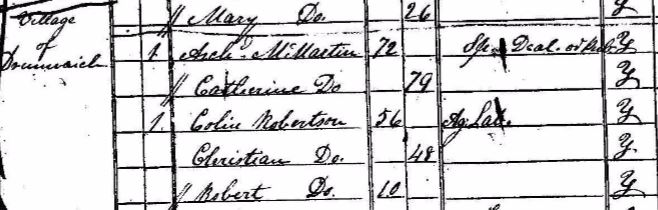 Village // Mary Do. 26 y
of 1. Arch. McMartin 72 Sp. Deal. y
// Catherine Do 79 y
1. Colin Robertson 56 Ag. Lab. y
Christian Do. 48 y
// Robert Do. 10 y